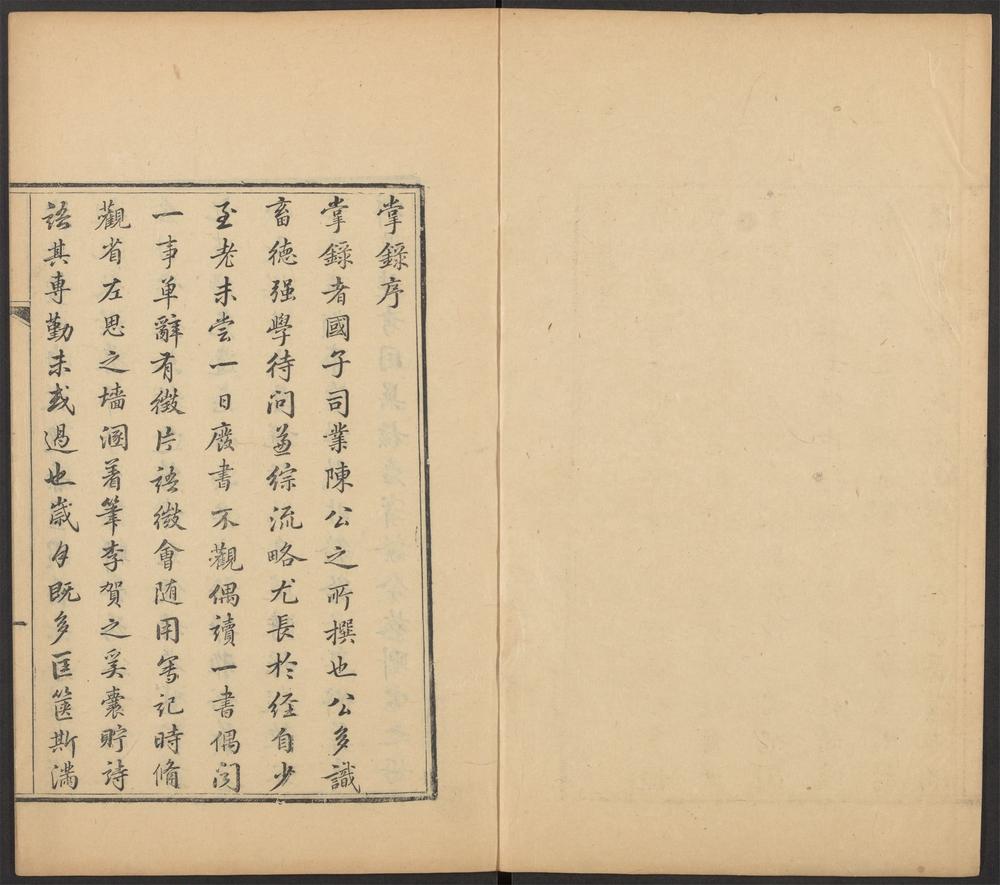 掌錄序
掌錄者國子司業陳公之所撰也公多識
畜德强學待问蓋綜流略尤長於經自少
至老未尝一日廢書不觀偶讀一書偶闻
一事单辭有徵片语微會随用写记時俻
觀省左思之墙溷着筆李賀之奚囊贮诗
语其專勤未或過也歳月既多匡篋斯满